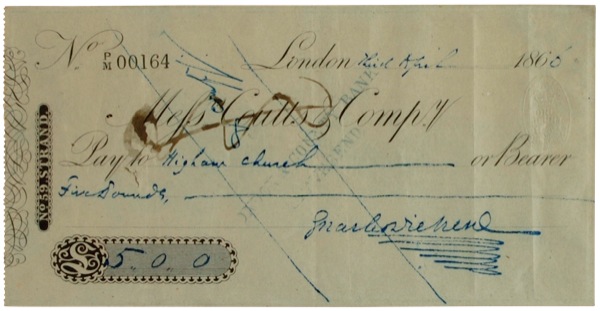 No P/M 00164 London Third April 1866
Messrs Coutts & Compy
No 59, STRAND.
Pay to Higham Church or Bearer
Five Pounds,
Charles Dickens
£ 5. 0. 0